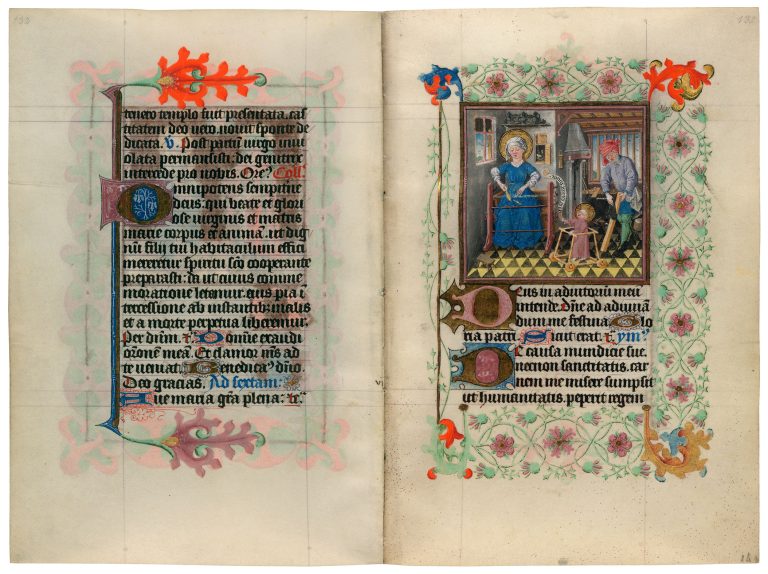 tenero templo fuit presentata, cas
titatem deo vero. novit sponte de
dicata. V. Post partū virgo invi
olata permansisti: dei genitrix
intercede pro nobis. Ore? Coll'
Omnipotens sempiterne
deus: qui beate et glori
ose virginis et matris
marie corpus et animam. ut dig
num filij tui habitaculum effici
mereretur spiritu sco cooperante
preparasti. da ut cuius comme
moratione letemur. eius pia ī
tercessione ab instantib; malis
et a morte perpetua liberemur.
Per dnm. Domine exaudi
oronem meā. Et clamor ms ad
te veniat. Benedica' dno.
Deo gracias. Ad sextam:
Ave maria gra plena:
Deus in adiutoriū meū
intende. Dne ad adiuvā
dum me festina. Glo
ria patri. Sicut erat. ym?
De causa mundicie suc
me non sanctitatis. car
nem me misere sumpsit
ut humanitatis. peperit regem